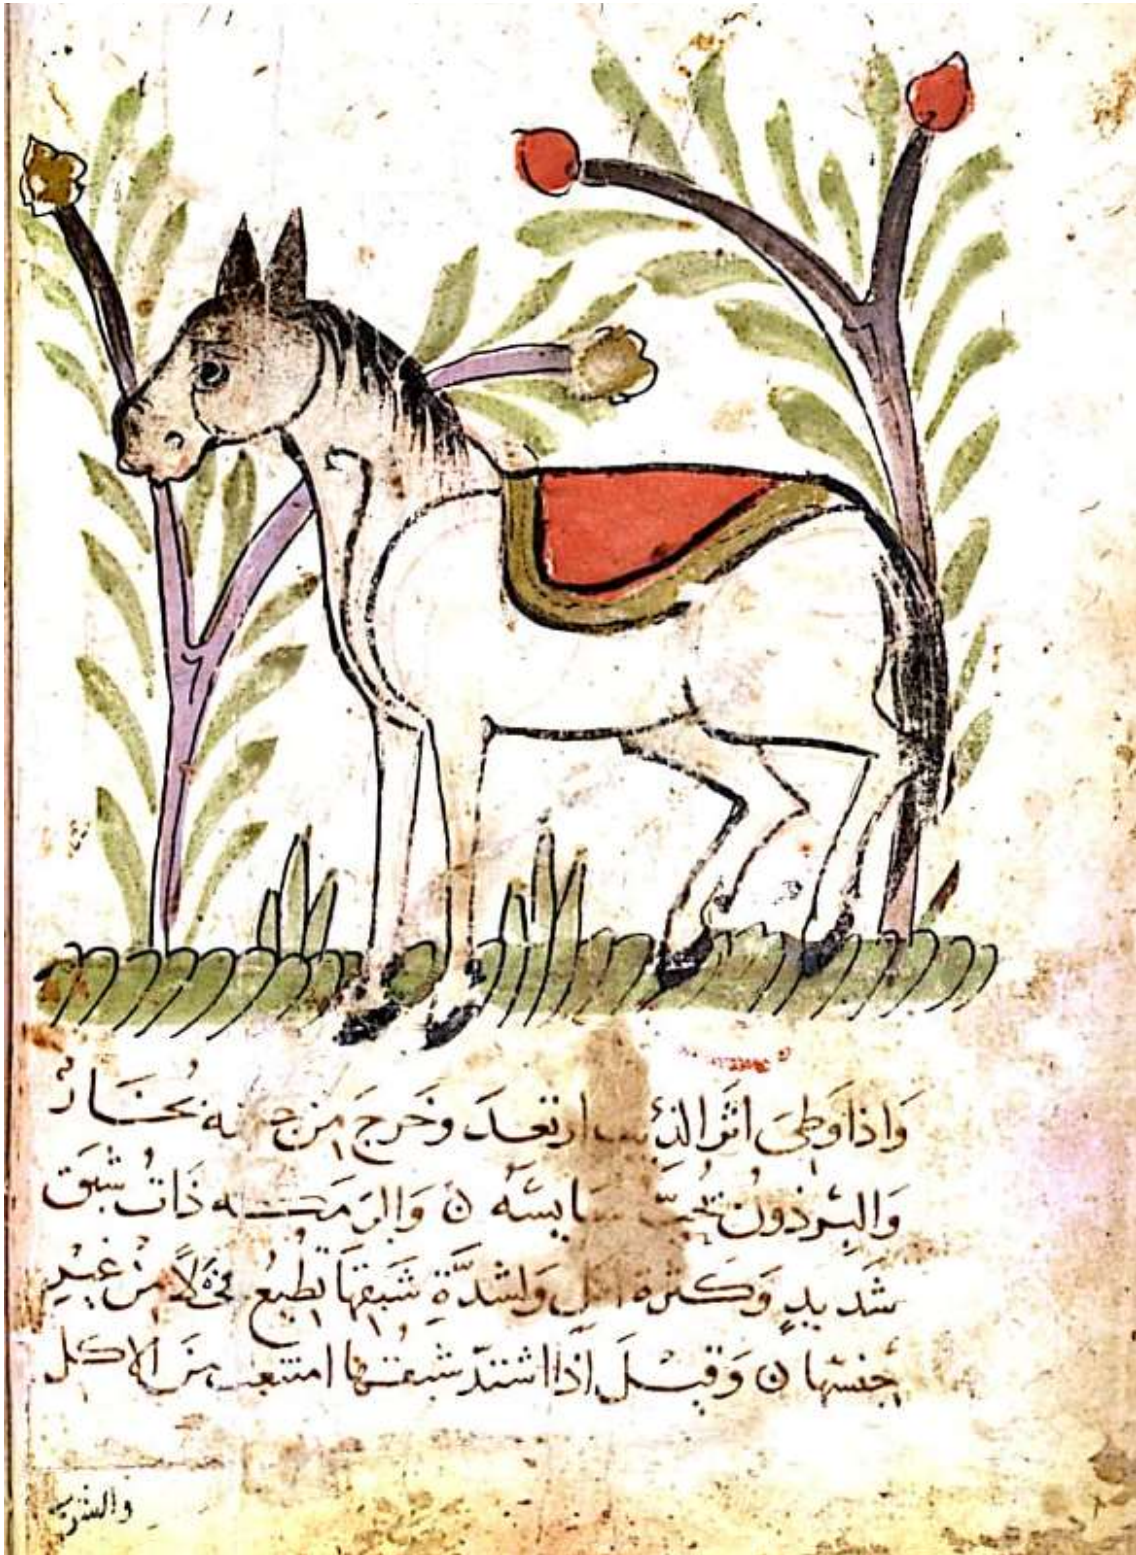 وَاذا وَطِىَ اثرَ الذئب ارتعدَ وخَرجَ مِن جـ ـه بُخَارٌ
وَالبِرذَونُ يُحبّ سَايسَهُ ن وَالرَمَكـه ذَاتُ شبَق
شَديدٍ وَكثرة وَلشدَّةِ شَبَقِهَا تطِيعُ فحْلاً مِنْ غيْرِ
جنسِها ن وَقيْلَ اذا اشتدّ شبَقُها امتنعت مِنَ الاكل
والشرب